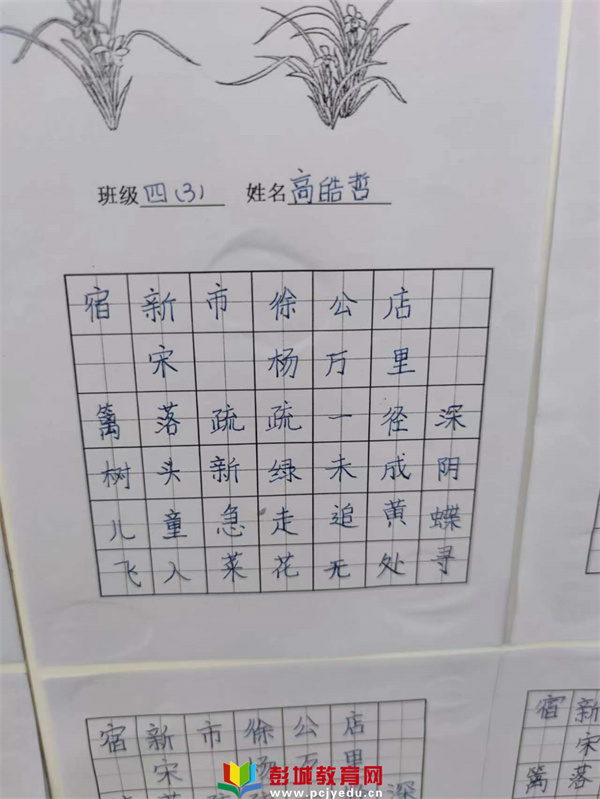 班级 四(3) 姓名 高皓哲
宿新市徐公店
宋 杨万里
篱落疏疏一径深
树头新绿未成阴
儿童急走追黄蝶
飞入菜花无处寻
宿新市徐公店
宋 杨万里
篱落疏疏 深
宿新
宋
篱落
彭城教育网
www.pcjyedu.cn